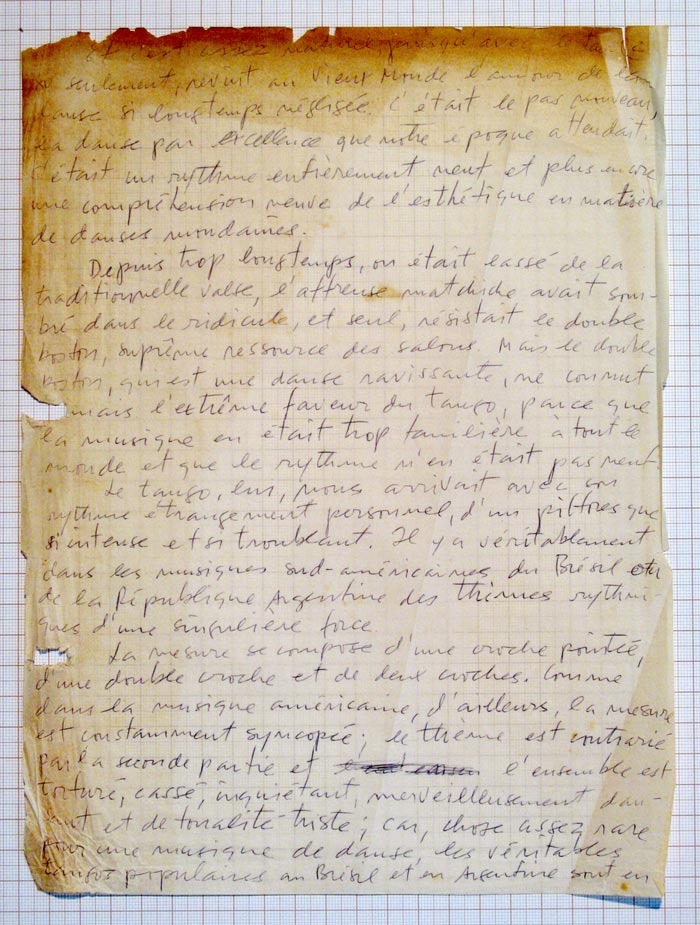 et c'est assez naturel, puisqu'avec le tango
seulement, revint au Vieux Monde l'amour de la
danse si longtemps négligée. C'était le pas nouveau,
la danse par excellence que notre époque attendait.
C'était un rythme entièrement neuf et plus encore
une compréhension neuve de l'esthétique en matière
de danses mondaines.
Depuis trop longtemps, on était lassé de la
traditionnelle valse, l'affreuse matchiche avait som-
bré dans le ridicule, et seul, résistait le double
boston, suprême ressource des salons. Mais le double
boston, qui est une danse ravissante, ne connut
mais l'extrême faveur du tango, parce que
la musique en était trop familière à tout le
monde et que le rythme n'en était pas neuf.
Le tango, lui, nous arrivait avec son
rythme étrangement personnel, d'un pittoresque
si intense et si troublant. Il y a véritablement
dans les musiques sud-américaines du Brésil ou
de la République Argentine des thèmes rythmi-
ques d'une singulière force.
La mesure se compose d'une croche pointée,
d'une double croche et de deux croches. Comme
dans la musique américaine, d'ailleurs, la mesure
est constamment syncopée; le thème est contrarié
par la seconde partie et l'ensemble est
torturé, cassé, inquiétant, merveilleusement dan-
sant et de tonalité triste; car, chose assez rare
pour une musique de danse, les véritables
tangos populaires au Brésil et en Argentine sont en